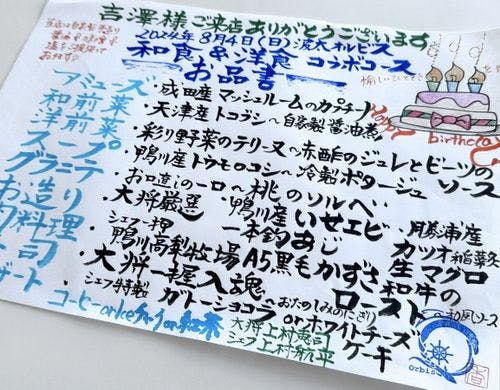 吉澤様ご来店ありがとうございます
2024年8月4日(日)波太オルビス
和食&洋食コラボコース
お品書
アミューズ
・成田産マッシュルームのカプチーノ
和前菜
・天津産トコブシ〜自家製醤油煮
洋前菜
・彩り野菜のテリーヌ〜赤酢のジュレとビーツのソース
スープ
・鴨川産トウモロコシ〜冷製ポタージュ
グラニテ
・お口直しの一口〜桃のソルベ
お造り
・大将厳選 鴨川産いせエビ・勝浦産カツオ
一本釣あじ 生マグロ
料理
・シェフ一押 鴨川高梨牧場A5黒毛かずさ和牛のロースト〜和風ソース
・大将一握入魂〜おたのしみのにぎり
デザート
・シェフ特製 ガトーショコラorホワイトチーズケーキ
コーヒーorIceティーor紅茶
大将上村
シェフ上村航平
Happy birthday
orbis